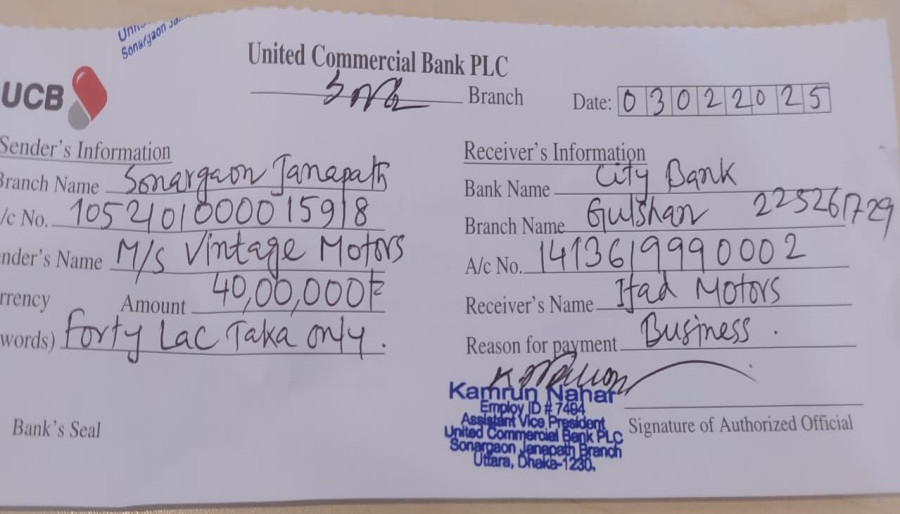 Sonargaon Ja
United Commercial Bank PLC
UCB
Branch
Date: 03022025
Sender's Information
Branch Name Sonargaon Janapath
/c No. 1052101000015918
nder's Name M/s Vintage Motors
rrency Amount 40,00,000/-
words) Forty Lac Taka only.
Bank's Seal
Receiver's Information
Bank Name City Bank
Branch Name Gulshan 225261729
A/c No. 1413619990002
Receiver's Name Ifad Motors
Reason for payment Business.
Kamrun Nahar
Employ ID # 7494
Assistant Vice President
United Commercial Bank PLC
Sonargaon Janapath Branch
Uttara, Dhaka-1230.
Signature of Authorized Official